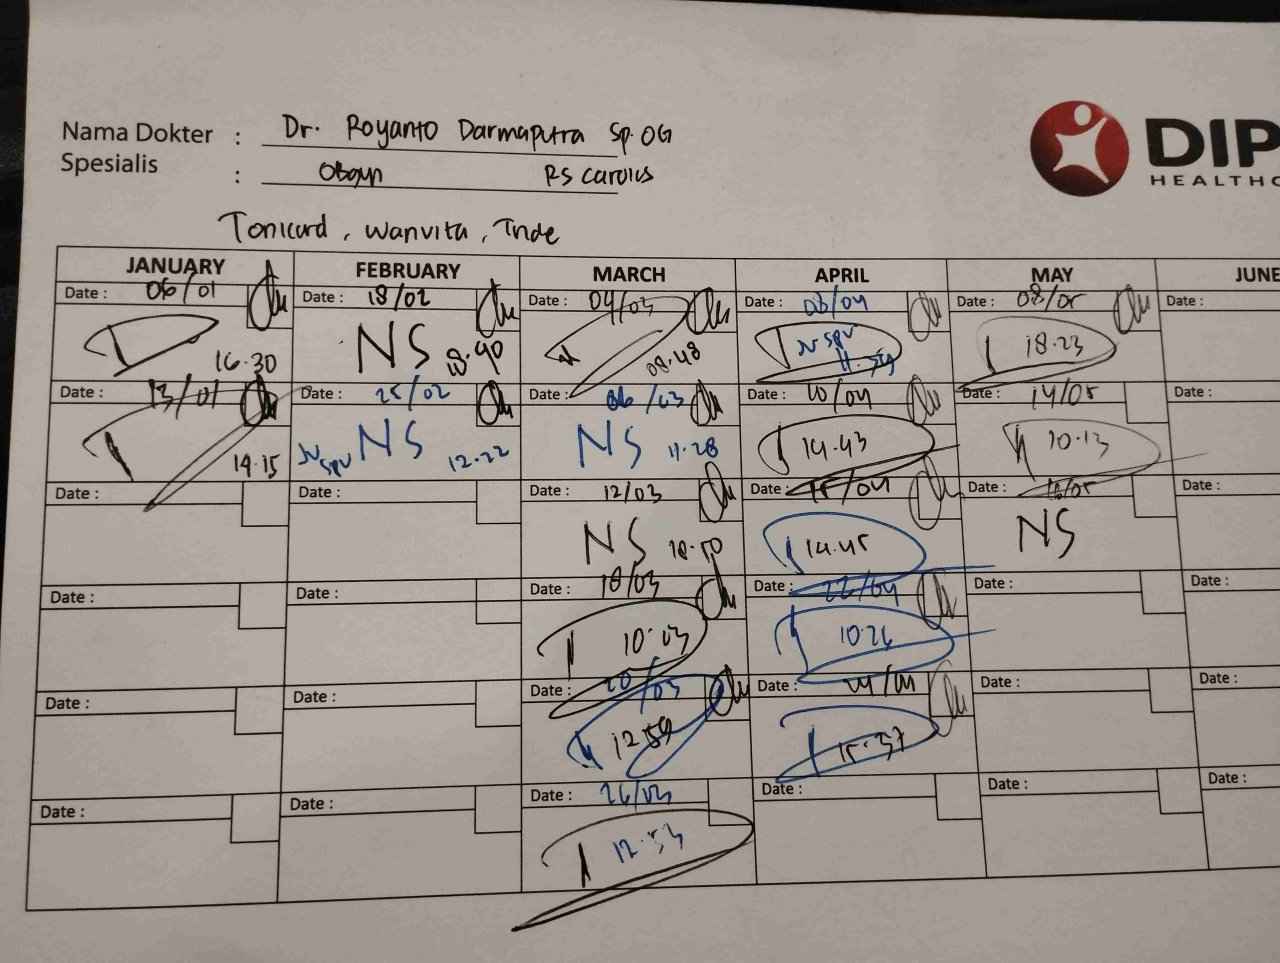 Nama Dokter : Dr. Royanto Darmaputra Sp.OG
Spesialis : Obgyn RS Carolus
DIP
HEALTHC
Tonicard, Wanvita, Inde
JANUARY FEBRUARY MARCH APRIL MAY JUNE
Date : 06/01 Date : 18/02 Date : 04/03 Date : 03/04 Date : 08/05 Date :
16.30 NS 18.40 08.48 JV SPV 18.23
Date : 13/01 Date : 25/02 Date : 06/03 Date : 10/04 Date : 14/05 Date :
14.15 JV SPV NS 12.22 NS 11.28 14.43 10.13
Date : Date : Date : 12/03 Date : 15/04 Date : Date :
NS 10.50 14.45 NS
Date : Date : Date : 18/03 Date : 22/04 Date : Date :
10.03 10.26
Date : Date : Date : 20/03 Date : Date : Date :
12.59 15.37
Date : Date : Date : 26/03 Date : Date : Date :
12.53